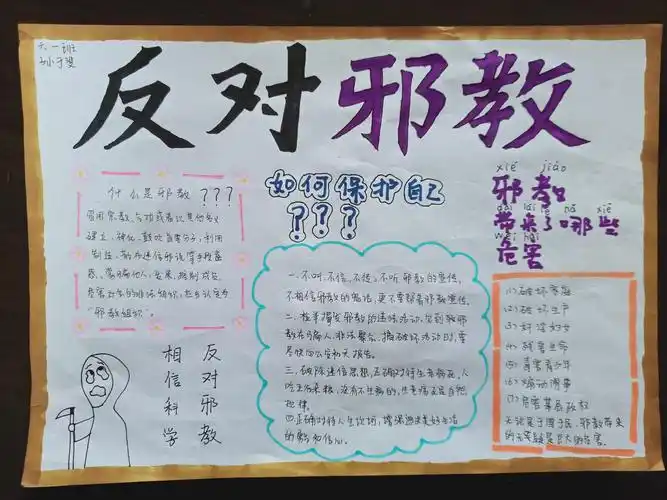 六一班
反对邪教
什么是邪教???
冒用宗教、气功或者以其他名义
建立,神化、鼓吹首要分子,利用
制造、散布迷信邪说等手段蛊
惑、蒙骗他人,发展、控制成员,
危害社会的非法组织,应当认定为
"邪教组织"。
反对邪教
相信科学
如何保护自己
???
一、不听、不信、不传,不听邪教的宣传,
不相信邪教的
二、检举揭发邪教的违法活动,见到邪
教在骗人、非法聚会、搞破坏活动时,要
尽快向公安机关报告。
三、破除迷信思想,正确对待生老病死,人
吃五谷杂粮,没有不生病的,生老病死是自然
规律。
四、正确对待人生坎坷,增强追求美好生活
的
xié jiào
邪教
dài lái le nǎ xiē
带来了哪些
wēi hài
危害
(1)破坏家庭
(2)破坏生产
(3)奸淫妇女
(4)残害生命
(5)毒害青少年
(6)煽动闹事
(7)危害基层政权
无论是于国于民,邪教带来
的无疑是巨大的危害。